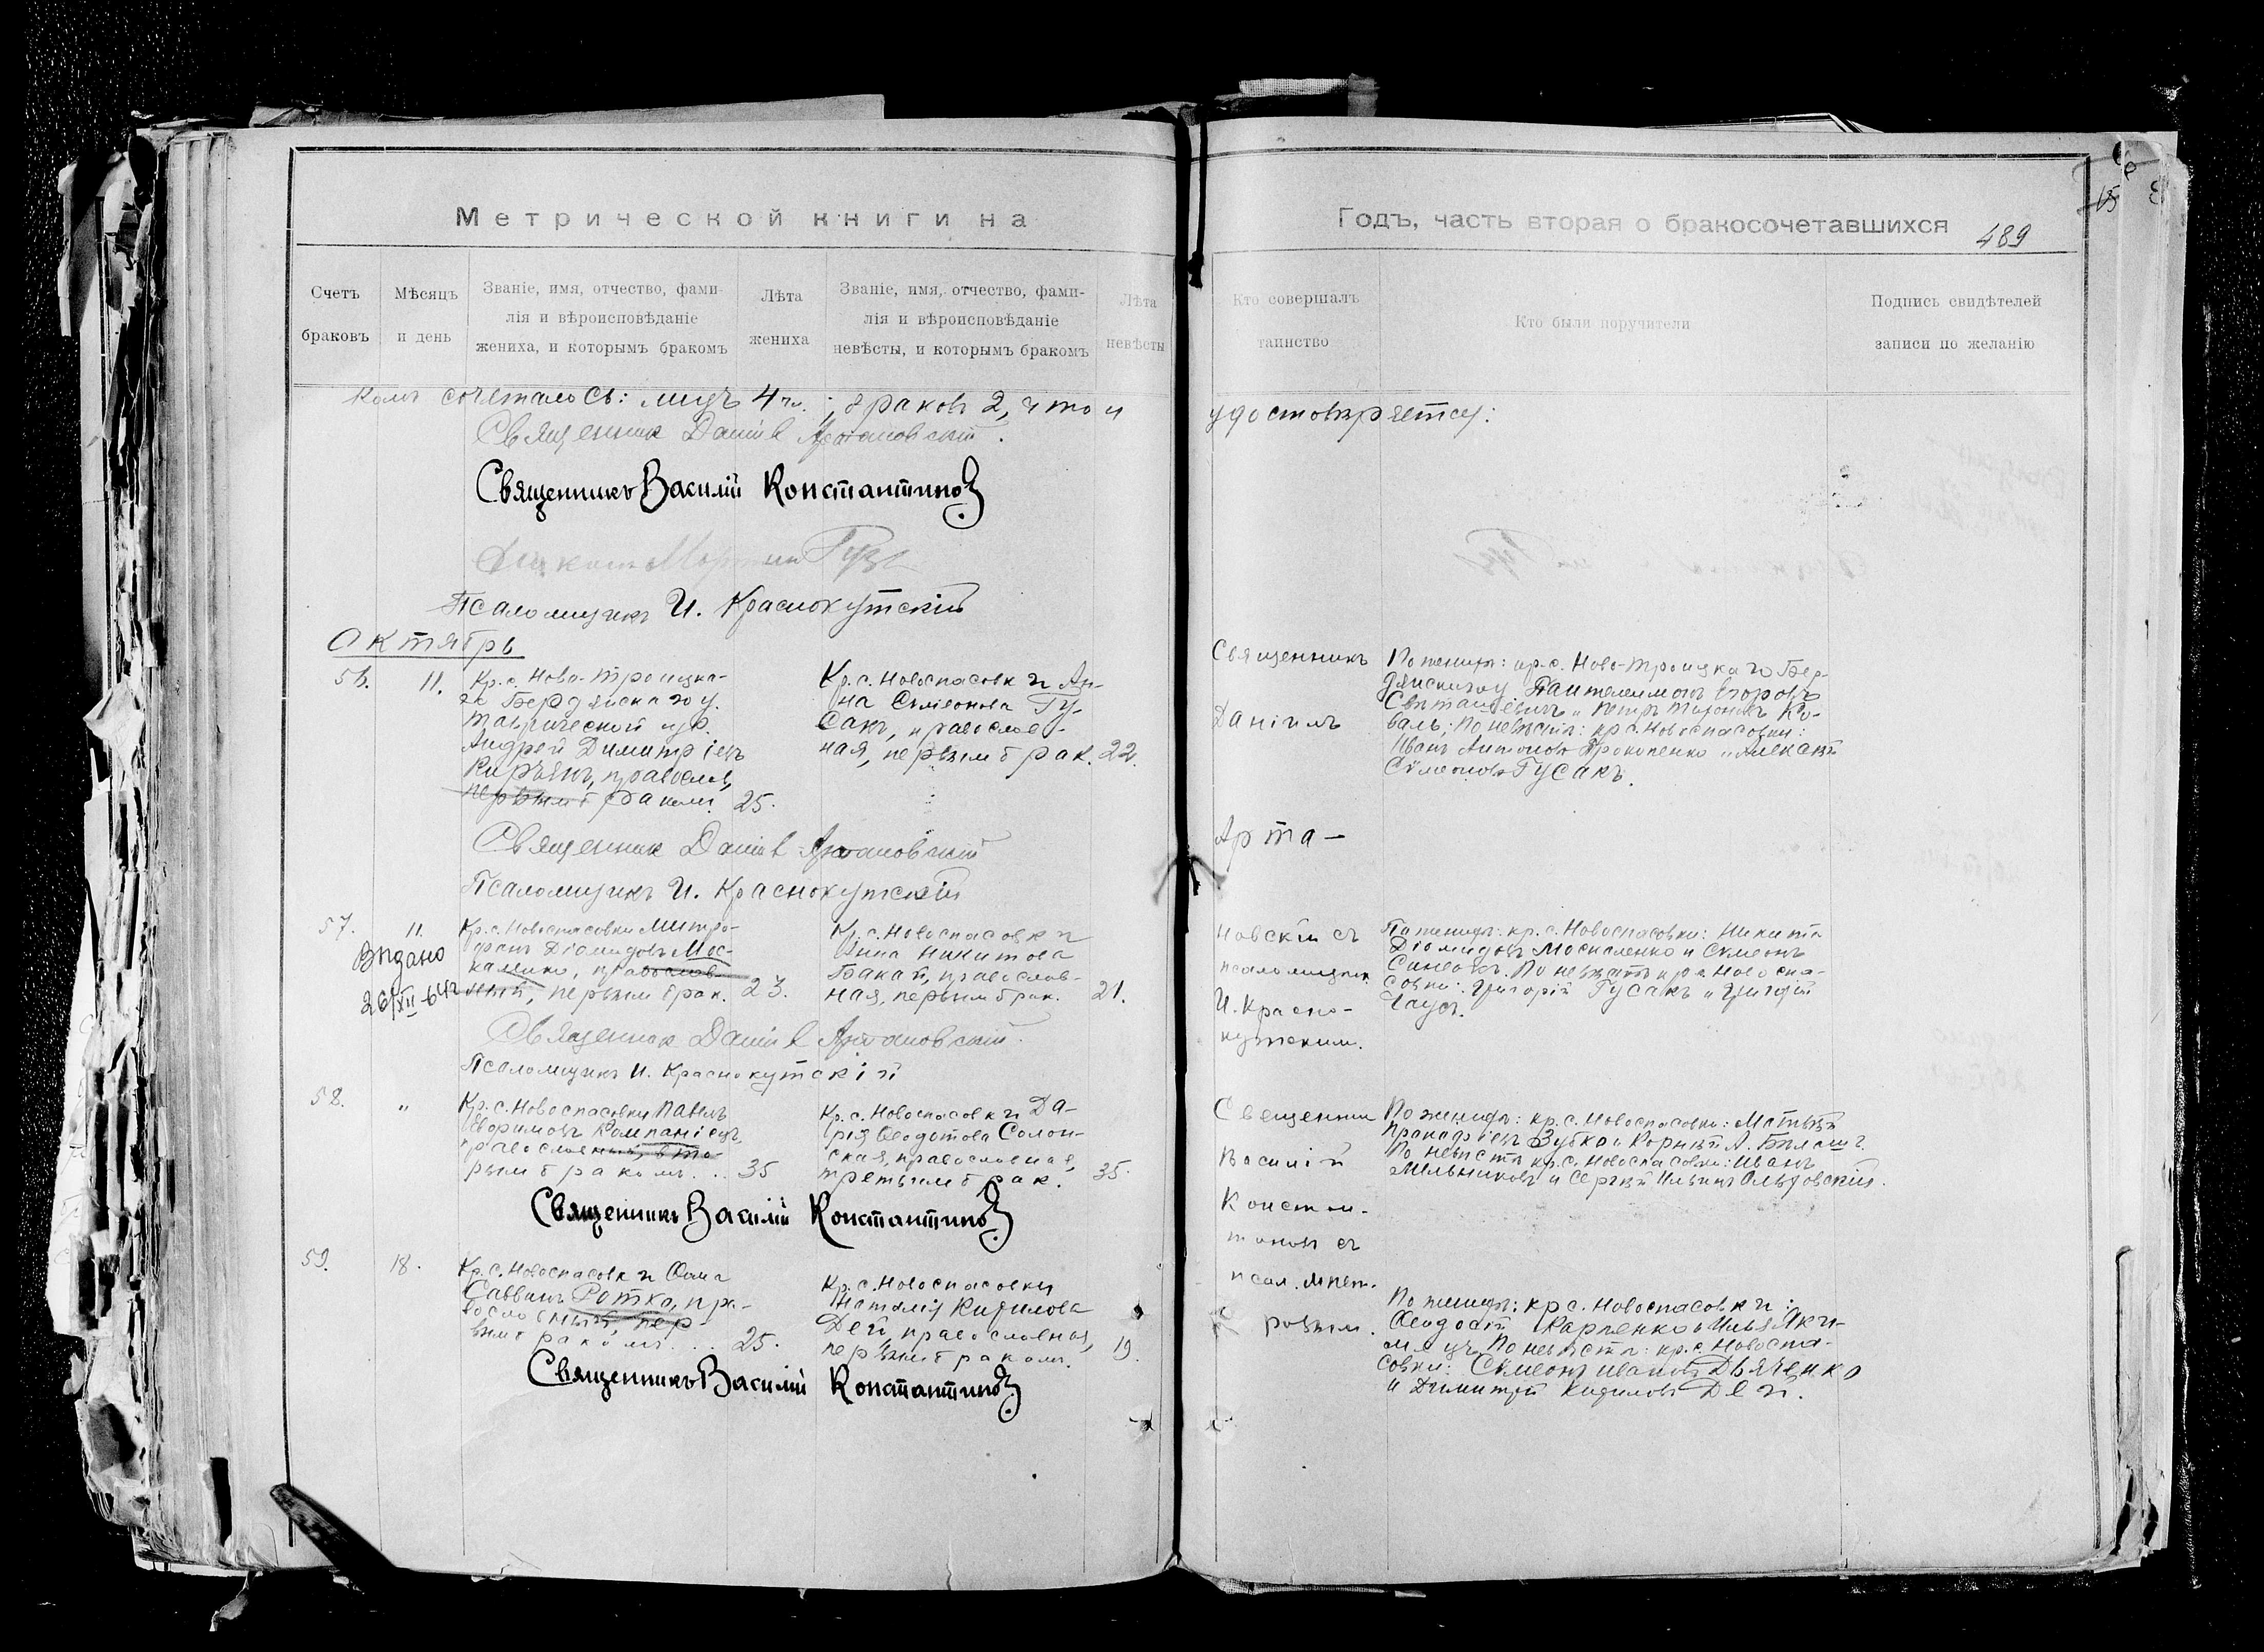 Метрической книги на
Годъ, часть вторая о бракосочетавшихся
489
Счетъ браковъ
Мѣсяцъ и день
Званіе, имя, отчество, фами-
лія и вѣроисповѣданіе
жениха, и которымъ бракомъ
Лѣта
жениха
Званіе, имя, отчество, фами-
лія и вѣроисповѣданіе
невѣсты, и которымъ бракомъ
Лѣта
невѣсты
Кто совершалъ
таинство
Кто были поручители
Подпись свидѣтелей
записи по желанію
сочеталось: лицъ 4 ч.; браковъ 2, что и
удостовѣряется:
Священник Даніил Артановскій.
Священникъ Василій Константинов
Псаломщикъ И. Краснокутскій
Октябрь
56.
11.
Кр. с. Ново-Троицка-
го Бердянскаго у.
Таврической губ.
Андрей Димитріевъ
Кирьянъ, правослов,
первым браком. 25.
Кр. с. Новоспасовки Ан-
на Симеонова Гу-
сакъ, православ-
ная, первым брак. 22.
Священникъ
Даніилъ
Арта-
новскій съ
псаломщик.
И. Красно-
кутским.
По женихѣ: кр. с. Ново-Троицкаго Бер-
дянскаго у. Пантелеимонъ Егоровъ
валь; По невѣстѣ: кр. с. Новоспасовки:
Иванъ Антоновъ Прокопенко и Алексѣй
Симеоновъ Гусакъ.
Священник Даніил Артановскій
Псаломщикъ И. Краснокутскій
57.
11.
Видано
26/XII-64г
Кр. с. Новоспасовки Митро-
фанъ Діомидовъ Мос-
каленко, православ-
ный, первым брак. 23.
Кр. с. Новоспасовки
Анна Никитова
Бакай, православ-
ная, первым брак. 21.
По женихѣ: кр. с. Новоспасовки: Никита
Діомидовъ Москаленко и Симеонъ
По невѣстѣ кр. с. Новоспа-
совки: Григорій Гусакъ и Григорій
Чаусъ.
Священник Даніил Артановскій.
Псаломщикъ И. Краснокутскій
58.
"
Кр. с. Новоспасовки Павелъ
Ефримовъ Компаніецъ,
православный, вто-
рымъ бракомъ... 35
Кр. с. Новоспасовки Да-
рія Ѳеодотова Солон-
ская, православная,
третьимъ брак. 35.
Священник
Василій
Констан-
тинов съ
псал. Мит-
розим.
По женихѣ: кр. с. Новоспасовки: Матвѣй
Зубко и Корнѣй А. Билаш.
По невѣстѣ кр. с. Новоспасовки: Иванъ
Мельниковъ и Сергѣй Ильинъ Ольховскій.
Священникъ Василій Константинов
59.
18.
Кр. с. Новоспасовки Ѳома
Саввинъ Ротко, пра-
вославный, пер-
вымъ бракомъ... 25.
Кр. с. Новоспасовки
Наталія Кирилова
Дей, православная,
первымъ бракомъ. 19.
По женихѣ: кр. с. Новоспасовки:
Ѳеодосій Карпенко и Илья Яки-
мецъ. По невѣстѣ: кр. с. Новоспа-
совки: Симеонъ Ивановъ Дьяченко
и Димитрій Кириловъ Дей.
Священникъ Василій Константинов